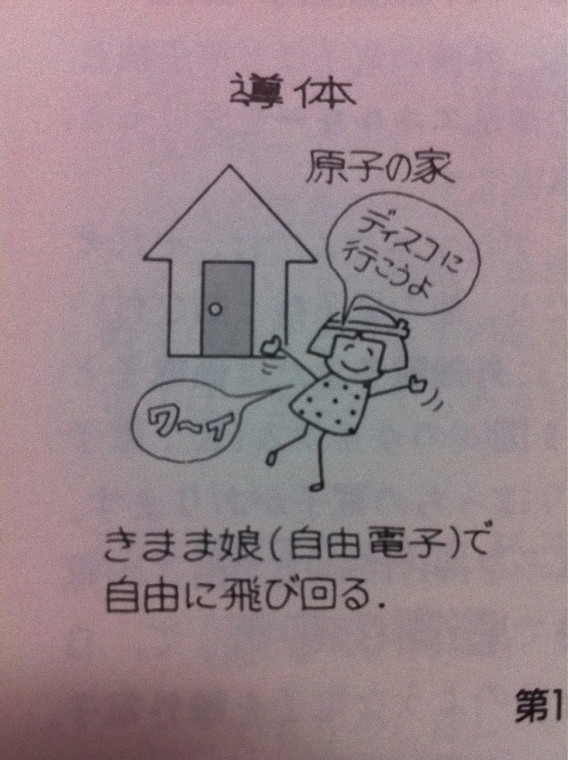 導体
原子の家
ディスコに
行こうよ
ワ〜イ
きまま娘(自由電子)で
自由に飛び回る.
第1